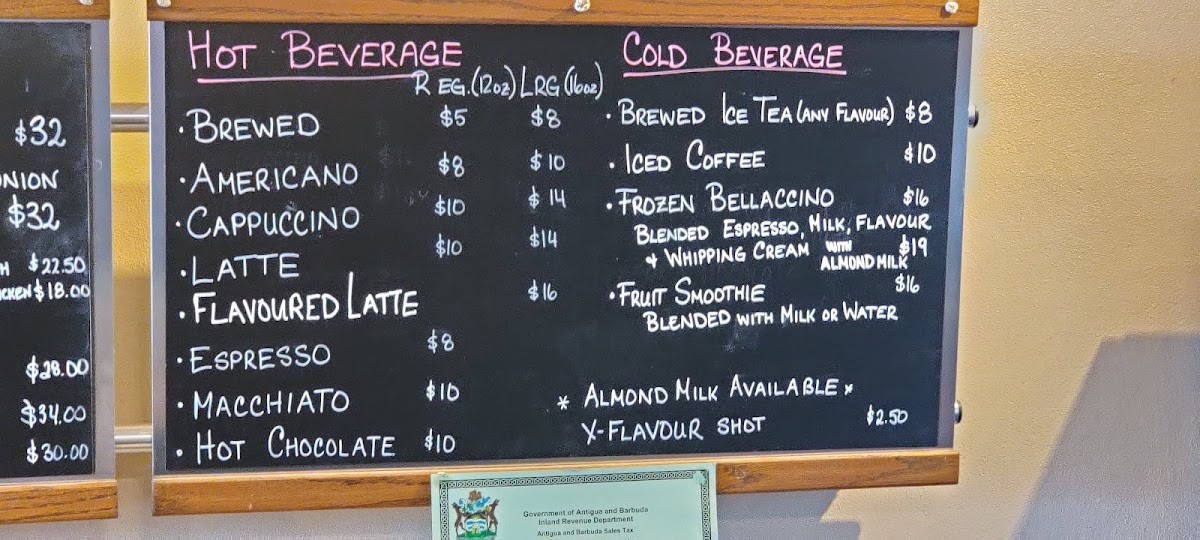 $32
NION
$32
$22.50
$18.00
$28.00
$34.00
$30.00
HOT BEVERAGE
REG.(12oz) LRG(16oz)
• BREWED $5 $8
• AMERICANO $8 $10
• CAPPUCCINO $10 $14
• LATTE $10 $14
• FLAVOURED LATTE $16
• ESPRESSO $8
• MACCHIATO $10
• HOT CHOCOLATE $10
COLD BEVERAGE
• BREWED ICE TEA (ANY FLAVOUR) $8
• ICED COFFEE $10
• FROZEN BELLACCINO $16
BLENDED ESPRESSO, MILK, FLAVOUR
+ WHIPPING CREAM WITH ALMOND MILK $19
• FRUIT SMOOTHIE $16
BLENDED WITH MILK OR WATER
* ALMOND MILK AVAILABLE *
X-FLAVOUR SHOT $2.50
Government of Antigua and Barbuda
Inland Revenue Department
Antigua and Barbuda Sales Tax